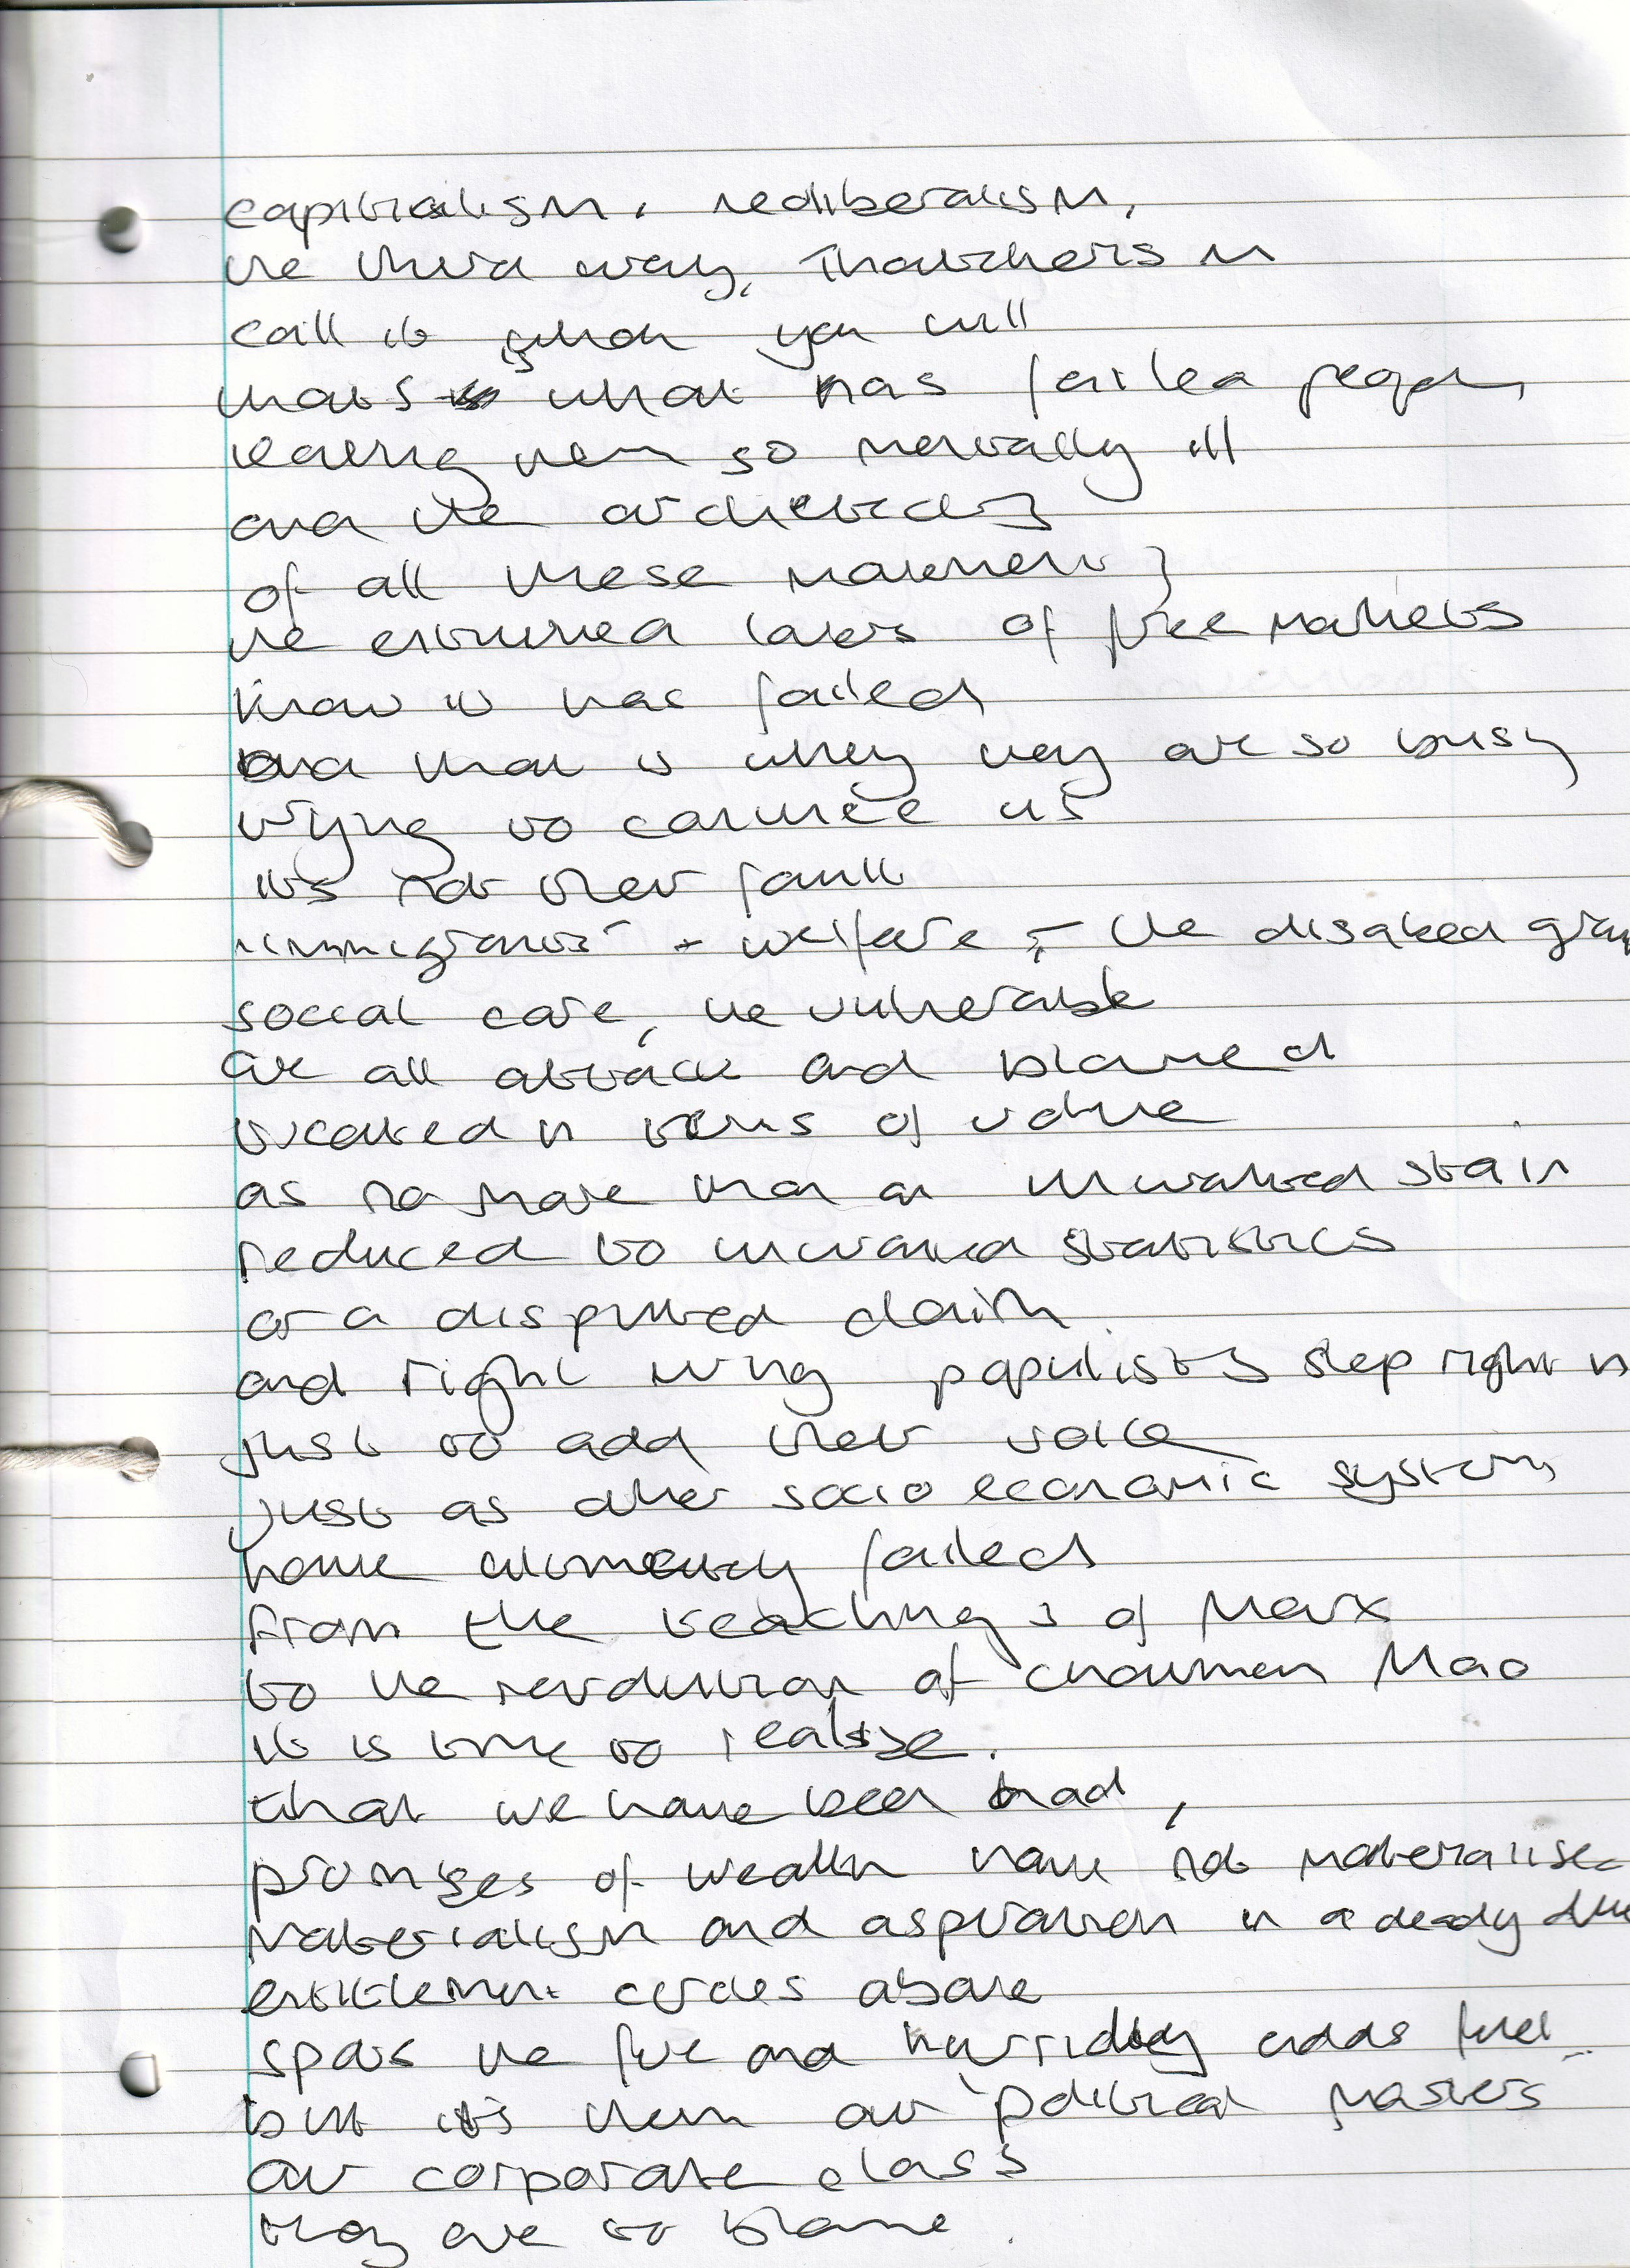 capitalism, neoliberalism,
the third way, Thatcherism
call it what you will
thats what has failed people,
leaving them so mentally ill
and the architects
of all these
the entwined laws of free markets
know it has failed
and that is why they are so busy
trying to convince us
its not their fault
immigrants + welfare, - the disabled
social care, the vulnerable
are all attack and blamed
treated in terms of value
as no more than an unwanted stain
reduced to unwanted statistics
or a disputed claim
and right wing populists step right in
just to add their voice
just as other socio economic systems
have ultimately failed
from the teachings of Marx
to the revolution of chairman Mao
it is time to realise.
that we have been had,
promises of wealth have not materialised
materialism and aspiration in a deadly
entitlement circles above
the fire and adds fuel
but its them our political masters
our corporate class
they are to blame.